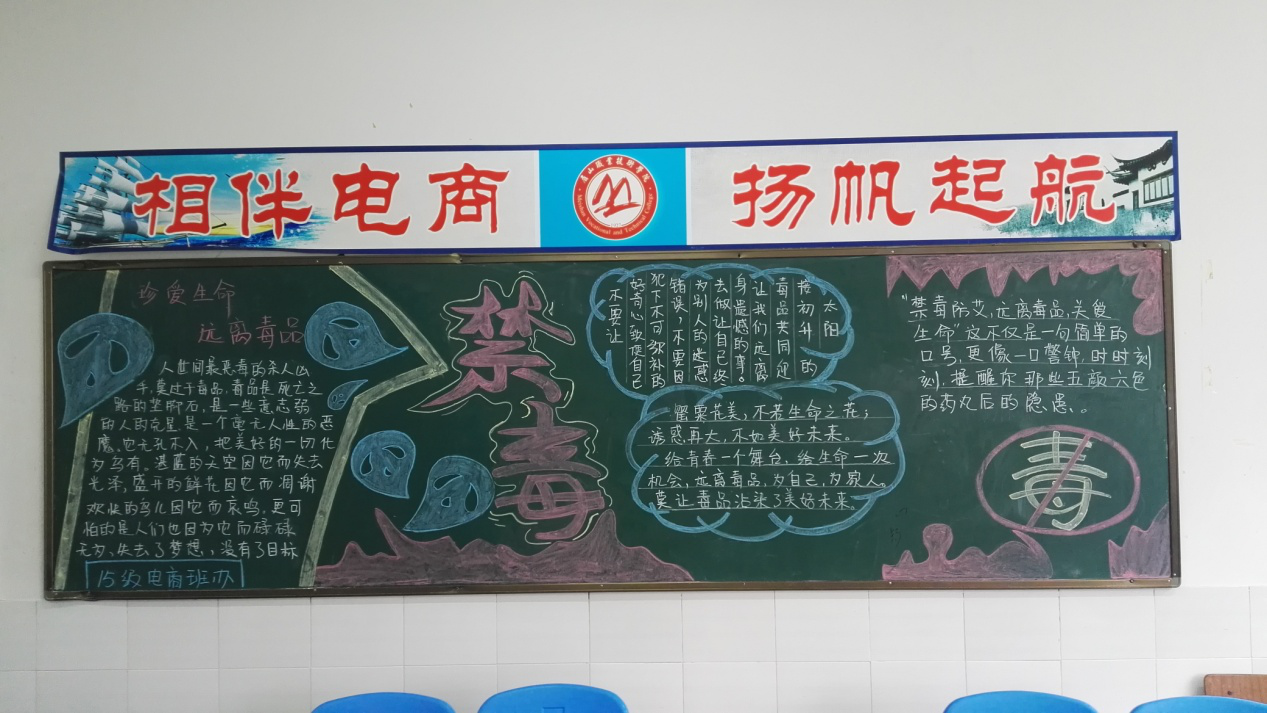 相伴电商
眉山職業技術學院
Meishan Vocational and Technical College
扬帆起航
珍爱生命
远离毒品
人世间最恶毒的杀人凶
手,莫过于毒品,毒品是死亡之
路的垫脚石,是一些意志弱
的人的克星是一个毫无人性的恶
魔。它无孔不入,把美好的一切化
为乌有。湛蓝的天空因它而失去
光泽,盛开的鲜花因它而凋谢
欢快的鸟儿因它而哀鸣。更可
怕的是人们也因为它而碌碌
无为、失去了梦想,没有了目标
15级电商班办
禁毒
不要让
好奇心致使自己
犯下不可弥补的
错误,不要因
为别人的迷惑
去做让自己终
身遗憾的事。
让我们远离
毒品共同迎
接初升的
太阳
罂粟花美,不若生命之花;
诱惑再大,不如美好未来。
给青春一个舞台,给生命一次
机会,远离毒品,为自己,为家人。
莫让毒品沾染了美好未来。
“禁毒防艾,远离毒品,关爱
生命”这不仅是一句简单的
口号,更像一口警钟,时时刻
刻,提醒你那些五颜六色
的药丸后的隐患。
毒